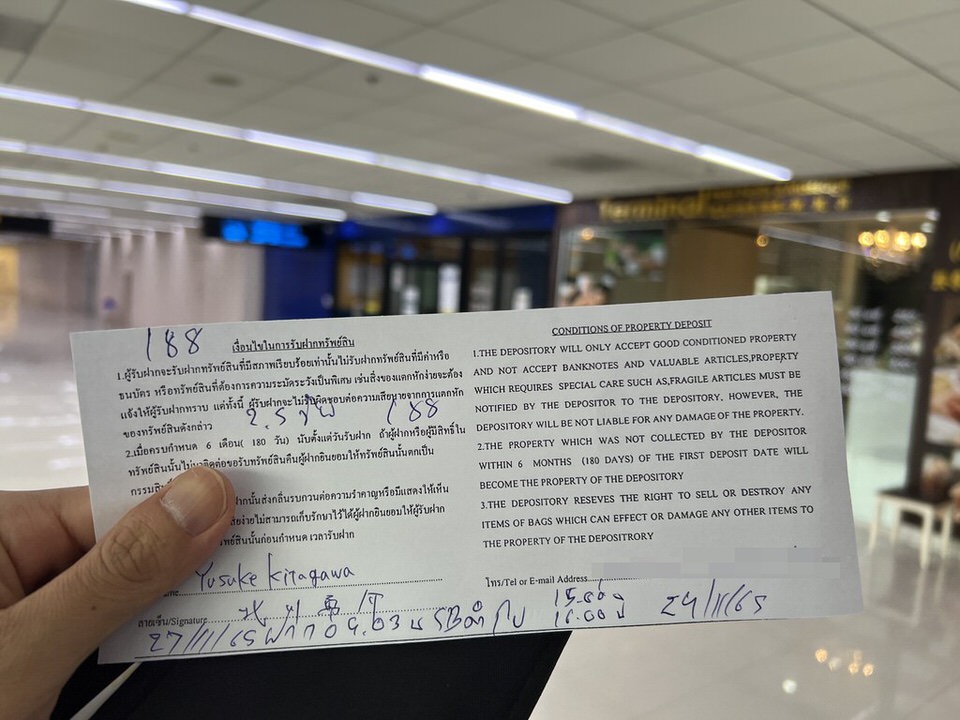 188
เงื่อนไขในการรับฝากทรัพย์สิน
1.ผู้รับฝากจะรับฝากทรัพย์สินที่มีสภาพเรียบร้อยเท่านั้นไม่รับฝากทรัพย์สินที่มีค่าหรือ
ธนบัตร หรือทรัพย์สินที่ต้องการความระมัดระวังเป็นพิเศษ เช่นสิ่งของแตกหักง่ายจะต้อง
แจ้งให้ผู้รับฝากทราบ แต่ทั้งนี้ ผู้รับฝากจะไม่รับผิดชอบต่อความเสียหายจากการแตกหัก
ของทรัพย์สินดังกล่าว
188
2.เมื่อครบกำหนด 6 เดือน( 180 วัน) นับตั้งแต่วันรับฝาก ถ้าผู้ฝากหรือผู้มีสิทธิ์ใน
ทรัพย์สินนั้นไม่มาติดต่อขอรับทรัพย์สินคืนผู้ฝากยินยอมให้ทรัพย์สินนั้นตกเป็น
ฝากนั้นส่งกลิ่นรบกวนต่อความรำคาญหรือมีแสดงให้เห็น
ง่ายไม่สามารถเก็บรักษาไว้ได้ผู้ฝากยินยอมให้ผู้รับฝาก
ทรัพย์สินนั้นก่อนกำหนด เวลารับฝาก
Yusuke Kitagawa
ลายเซ็น/Signature
27/11/65
CONDITIONS OF PROPERTY DEPOSIT
1.THE DEPOSITORY WILL ONLY ACCEPT GOOD CONDITIONED PROPERTY
AND NOT ACCEPT BANKNOTES AND VALUABLE ARTICLES,PROPERTY
WHICH REQUIRES SPECIAL CARE SUCH AS,FRAGILE ARTICLES MUST BE
NOTIFIED BY THE DEPOSITOR TO THE DEPOSITORY. HOWEVER, THE
DEPOSITORY WILL BE NOT LIABLE FOR ANY DAMAGE OF THE PROPERTY.
2.THE PROPERTY WHICH WAS NOT COLLECTED BY THE DEPOSITOR
WITHIN 6 MONTHS (180 DAYS) OF THE FIRST DEPOSIT DATE WILL
BECOME THE PROPERTY OF THE DEPOSITORY
3.THE DEPOSITORY RESEVES THE RIGHT TO SELL OR DESTROY ANY
ITEMS OF BAGS WHICH CAN EFFECT OR DAMAGE ANY OTHER ITEMS TO
THE PROPERTY OF THE DEPOSITRORY
โทร/Tel or E-mail Address
16.00 น
29/11/65
Terminal